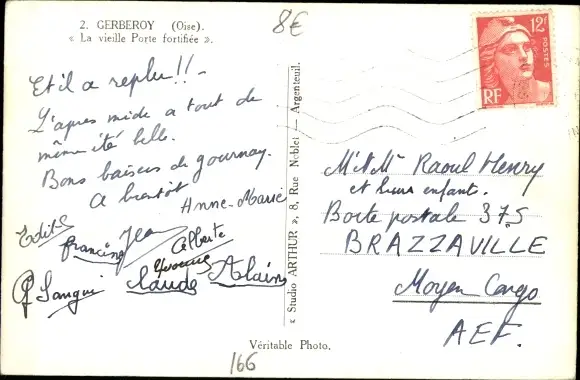 2. GERBEROY (Oise).
« La vieille Porte fortifiée ».
8€
12F
POSTES
RF
Et il a replu!! -
L'après midi a tout de
même été belle.
Bons baisers de gournay.
A bientôt
Anne-Marie
Edith
Francine Jean Alberte
Yvonne
Claude Alain
« Studio ARTHUR », 8, Rue Noblet — Argenteuil.
Mr et Mme Raoul Henry
et leurs enfants.
Boite postale 375
BRAZZAVILLE
Moyen Congo
AEF.
Véritable Photo.
166